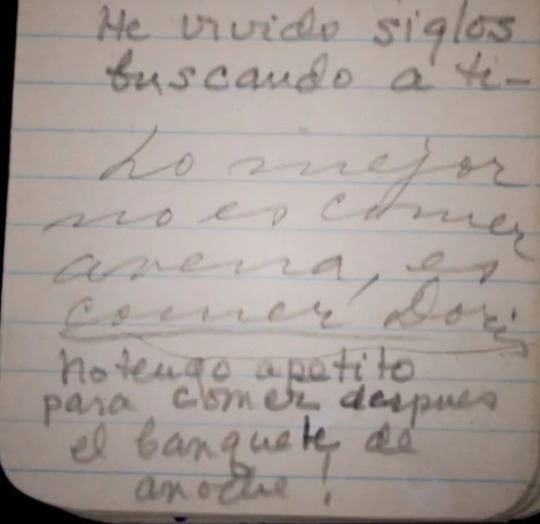 He vivido siglos
buscando a ti-
Lo mejor
no es comer
avena, es
comer Doris
No tengo apetito
para comer despues
el banquete de
anoche!